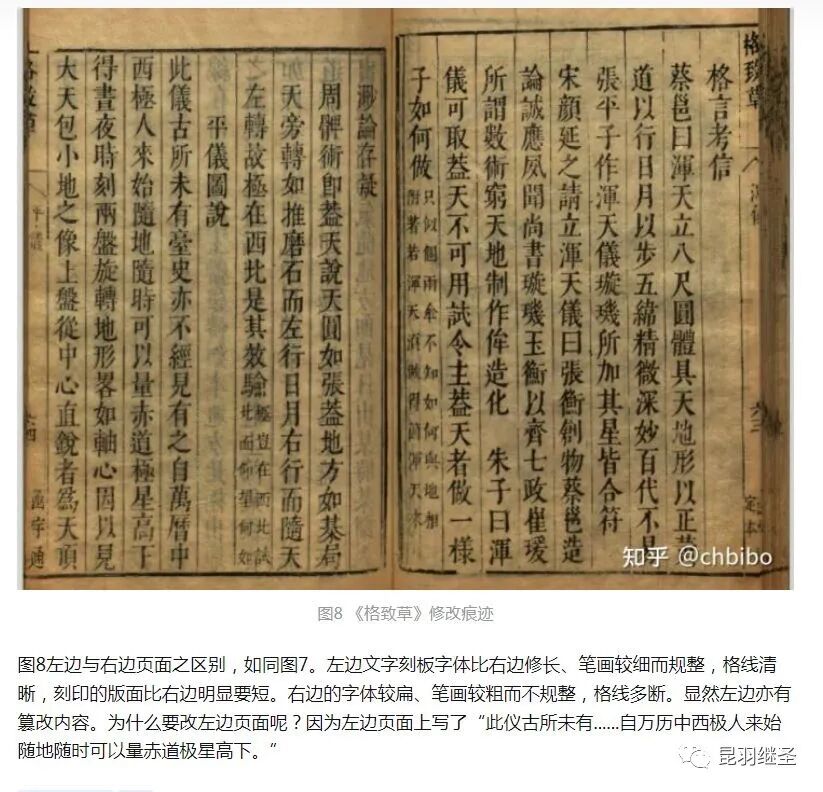 格致草
格言考信
蔡邕曰渾天立八尺圓體具天地形以正黃
道以行日月以步五緯精微深妙百代不易
張平子作渾天儀璇璣所加其星皆合符
宋顏延之請立渾天儀曰張衡創物蔡邕造
論誠應夙聞尚書璇璣玉衡以齊七政崔瑗
所謂數術窮天地制作侔造化 朱子曰渾
儀可取葢天不可用試令主葢天者做一樣
子如何做只似個雨傘不知如何與地相
附著若渾天須做得個渾天來
渺論存疑
周髀術即葢天說天圓如張葢地方如棊局
天旁轉如推磨石而左行日月右行而隨天
之左轉故極在西北是其效驗極豈在西北試
北面仰望何如
平儀圖說
此儀古所未有臺史亦不經見有之自萬曆中
西極人來始隨地隨時可以量赤道極星高下
得晝夜時刻兩盤旋轉地形畧如軸心因以見
大天包小地之像上盤從中心直銳者爲天頂
格致草
平儀
六四
函宇通
知乎 @chbibo
图8 《格致草》修改痕迹
图8左边与右边页面之区别，如同图7。左边文字刻板字体比右边修长、笔画较细而规整，格线清
晰，刻印的版面比右边明显要短。右边的字体较扁、笔画较粗而不规整，格线多断。显然左边亦有
篡改内容。为什么要改左边页面呢？因为左边页面上写了“此仪古所未有......自万历中西极人来始
随地随时可以量赤道极星高下。”
昆羽继圣